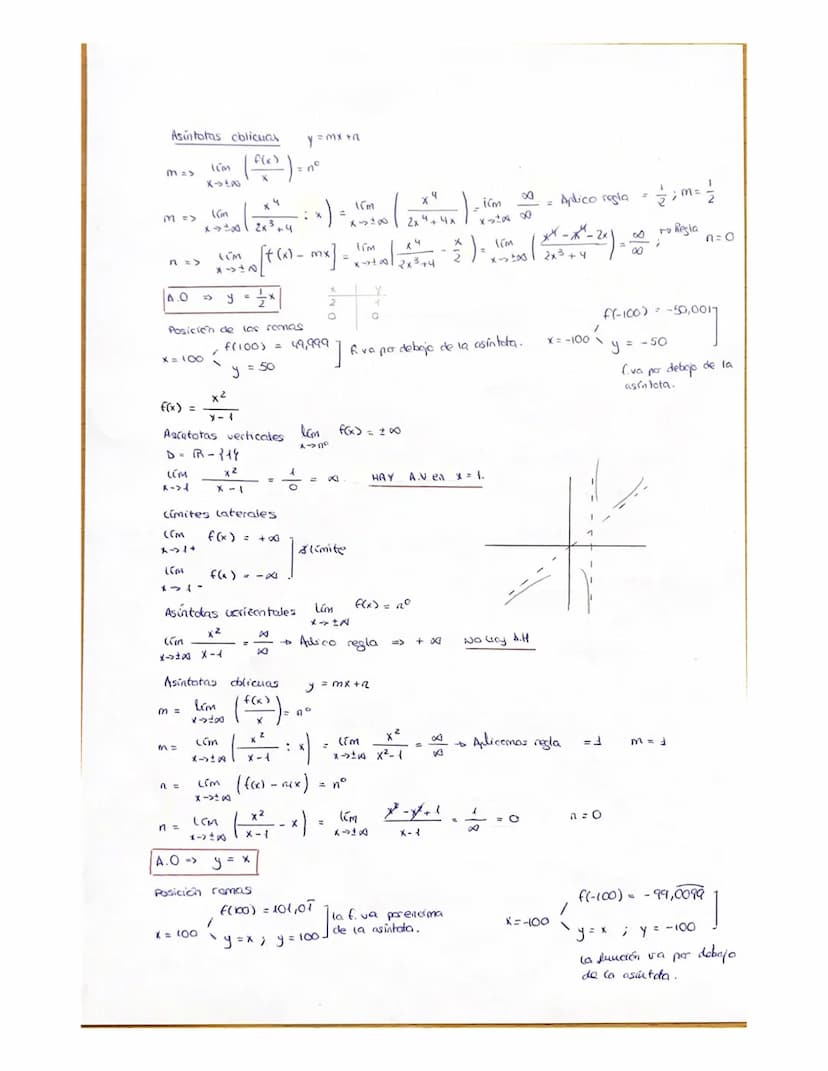 Asíntotas oblicuas y = mx + n
m => lím x->±∞ (f(x)/x) = nº
m => lím x->±∞ (x⁴/(2x³+4) : x) = lím x->±∞ (x⁴/(2x⁴+4x)) = lím x->±∞ ∞/∞ = Aplico regla = 1/2 ; m = 1/2
n => lím x->±∞ [f(x) - mx] = lím x->±∞ (x⁴/(2x³+4) - x/2) = lím x->±∞ ((x⁴ - x⁴ - 2x)/(2x³+4)) = ∞/∞ ; → Regla n = 0
A.O => y = 1/2 x
x y
2 1
0 0
Posición de las ramas
x = 100 f(100) = 49,999 y = 50 ] f. va por debajo de la asíntota.
x = -100 f(-100) = -50,001 y = -50 ]
f. va por debajo de la
asíntota.
f(x) = x²/(x-1)
Asíntotas verticales lím x->nº f(x) = ±∞
D = R - {1}
lím x->1 x²/(x-1) = 1/0 = ∞ HAY A.V en x = 1.
Límites laterales
lím x->1+ f(x) = +∞
lím x->1- f(x) = -∞ ] ∄ límite
Asíntotas horizontales lím x->±∞ f(x) = nº
lím x->±∞ x²/(x-1) = ∞/∞ → Aplico regla => +∞ No hay A.H
Asíntotas oblicuas y = mx + n
m = lím x->±∞ (f(x)/x) = nº
m = lím x->±∞ (x²/(x-1) : x) = lím x->±∞ x²/(x²-1) = ∞/∞ → Aplicamos regla = 1 m = 1
n = lím x->±∞ (f(x) - mx) = nº
n = lím x->±∞ (x²/(x-1) - x) = lím x->±∞ (x² - x² + 1)/(x-1) = 1/∞ = 0 n = 0
A.O => y = x
Posición ramas
x = 100 f(100) = 101,01 y = x ; y = 100 ] la f. va por encima
de la asíntota.
x = -100 f(-100) = -99,0099 y = x ; y = -100 ]
la función va por debajo
de la asíntota.